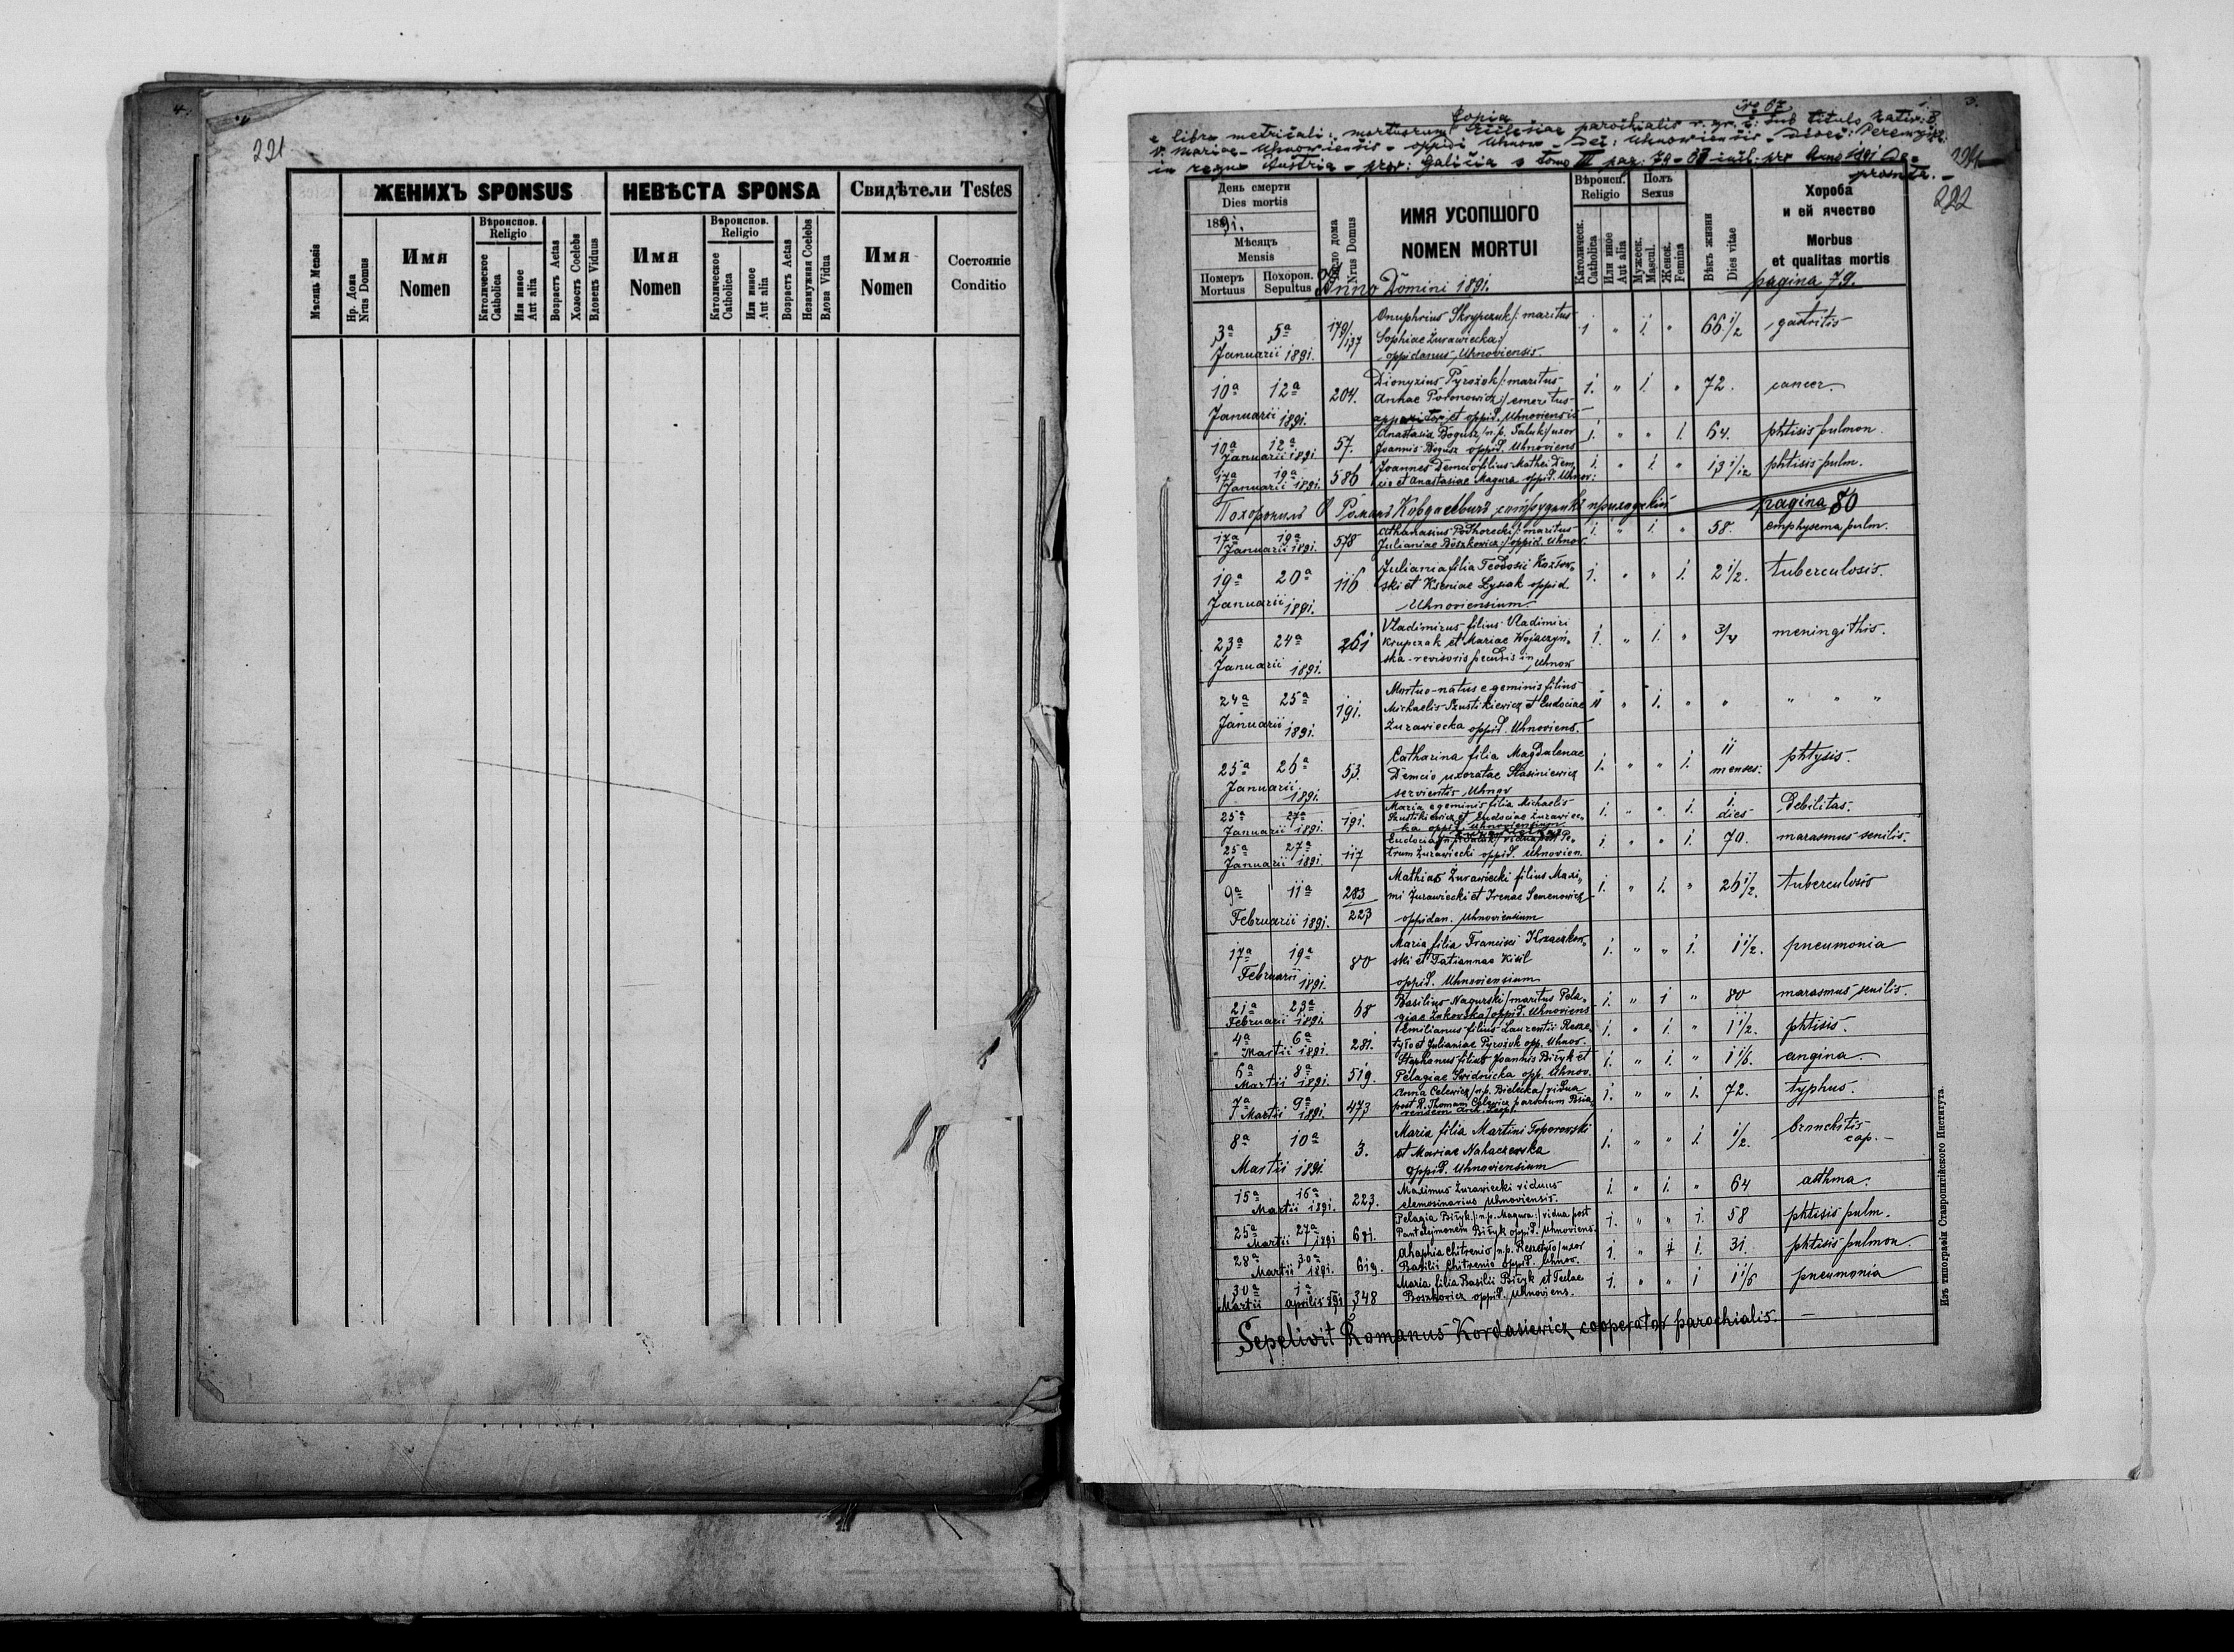 221
ЖЕНИХЪ SPONSUS
НЕВѢСТА SPONSA
Свидѣтели Testes
Мѣсяць Mensis
Нр. Дома
Nrus Domus
Имя
Nomen
Вѣроиспов.
Religio
Католическое
Catholica
Или иное
Aut alia
Возрастъ Aetas
Холостъ Coelebs
Вдовецъ Viduus
Имя
Nomen
Вѣроиспов.
Religio
Католическое
Catholica
Или иное
Aut alia
Возрастъ Aetas
Незамужная Coelebs
Вдова Vidua
Имя
Nomen
Состояніе
Conditio
Copia
Nro 67
e libro metricali mortuorum Ecclesiae parochialis r. gr. c. sub titulo Nativ: B
V. Mariae Uhnoviensis oppidi Uhnow Dec: Uhnoviensis
in regno Austria prov: Galicia tomo III pag: 79 incl. pro Anno 1891
222
День смерти
Dies mortis
1891.
Мѣсяць
Mensis
Померъ
Mortuus
Похорон.
Sepultus
Число дома
Nrus Domus
ИМЯ УСОПШОГО
NOMEN MORTUI
Вѣроисп.
Religio
Католическ.
Catholica
Или иное
Aut alia
Полъ
Sexus
Мужеск.
Mascul.
Женск.
Femina
Вѣкъ жизни
Dies vitae
Хороба
и ей ячество
Morbus
et qualitas mortis
Anno Domini 1891. pagina 79.
3a 5a 179/137 Onuphrius Skrypczuk /: maritus 1 " 1. " 66 1/2 gastritis
Januarii 1891. Sophiae Żurawiecka :/
oppidanus Uhnoviensis.
10a 12a 204. Dionyzius Pyrożok /: maritus 1. " 1. " 72. cancer.
Annae Poronowicz / emeritus
Januarii 1891. et oppid. Uhnoviensis
10a 12a 57. Anastasia Bogusz / n. p. Saluk / uxor 1. " " 1. 64. phtisis pulmon.
Januarii 1891 Joannis Bogusz oppid. Uhnoviens
17a 19a 586 Joannes Demcio filius Mathei Dem 1. " 1. " 13 1/12 phtisis pulm.
Januarii 1891. cio et Anastasiae Magura oppid. Uhnov:
Похоронилъ О Романъ Кордасевичъ сотрудникъ приходскій pagina 80
17a 19a 578 Athanasius Podhorecki /: maritus 1. " 1. " 58. emphysema pulm.
Januarii 1891. Julianiae Boszkowicz / oppid. Uhnov.
19a 20a 116 Juliania filia Teodosii Kozłow- 1. " " 1. 2 1/2. tuberculosis.
ski et Kseniae Łysiak oppid.
Januarii 1891. Uhnoviensium
23a 24a 261 Vladimirus filius Vladimiri 1. " 1. " 3/4 meningithis.
Krupczak et Mariae Wojaczyń-
Januarii 1891. ska - revisoris in Uhnow
24a 25a 191. Mortuo-natus e geminis filius " " 1. " " " " "
Michaelis Szustikiewicz et Eudociae
Januarii 1891. Żurawiecka oppid. Uhnoviens.
25a 26a 53. Catharina filia Magdalenae 1. " " 1. 11 menses. phtysis.
Demcio uxoratae Stasiniewicz
Januarii 1891. servientis Uhnov
25a 27a 191. Maria e geminis filia Michaelis 1. " " 1. 1. dies Debilitas.
Januarii 1891. Szustikiewicz et Eudociae Żurawiec-
ka oppid. Uhnoviensium
25a 27a 117 Eudocia vidua post Pe- 1. " " 1. 70. marasmus senilis.
Januarii 1891. trum Żurawiecki oppid. Uhnovien.
9a 11a 283/223 Mathias Żurawiecki filius Maxi- 1. " 1. " 26 1/2. tuberculosis
mi Żurawiecki et Irenae Semenowicz
Februarii 1891. oppidan. Uhnoviensium
17a 19a 80 Maria filia Francisci Krzaczkow- 1. " " 1. 1 1/2. pneumonia
ski et Tatiannae Kisil
Februarii 1891. oppid. Uhnoviensium
21a 23a 68 Basilius Nagurski / maritus Pela- 1. " 1 " 80 marasmus senilis.
Februarii 1891. giae Żukowska / oppid. Uhnoviens
4a 6a 281. Emilianus filius Laurentii Resze- 1. " 1. " 1 1/2. phtisis.
Martii 1891. tyło et Julianiae Pyrożok opp. Uhnov.
6a 8a 519. Stephanus filius Joannis Biłyk et 1. " 1. " 1 1/6. angina.
Martii 1891. Pelagiae Swidnicka opp. Uhnov.
7a 9a 473 Anna Celewicz / n. p. Bielecka / vidua 1. " " 1. 72. typhus.
Martii 1891. post R. Thomam Celewicz parochum
8a 10a 3. Maria filia Martini Toporowski 1. " " 1. 1/2. bronchitis cap.
et Mariae Nahaczewska
Martii 1891. oppid. Uhnoviensium
15a 16a 223. Maximus Żurawiecki viduus 1. " 1. " 64 asthma.
Martii 1891. elemosinarius Uhnoviensis.
25a 27a 671. Pelagia Biłyk /: n. p. Magura :/ vidua post 1. " " 1. 58 phtisis pulm.
Martii 1891 Pantelejmonem Biłyk oppid. Uhnoviens.
28a 30a 619. Ahaphia Chitrenio / n. p. Reszetyło / uxor 1. " 1. 31. phtisis pulmon.
Martii 1891. Basilii Chitrenio oppid. Uhnov.
30a 1a 348 Maria filia Basilii Biłyk et Teclae 1. " " 1 1 1/6 pneumonia
Martii aprilis 891 Boszkowicz oppid. Uhnoviens.
Sepelivit Romanus Kordasiewicz cooperator parochialis.
Изъ типографіи Ставропигійского Института.